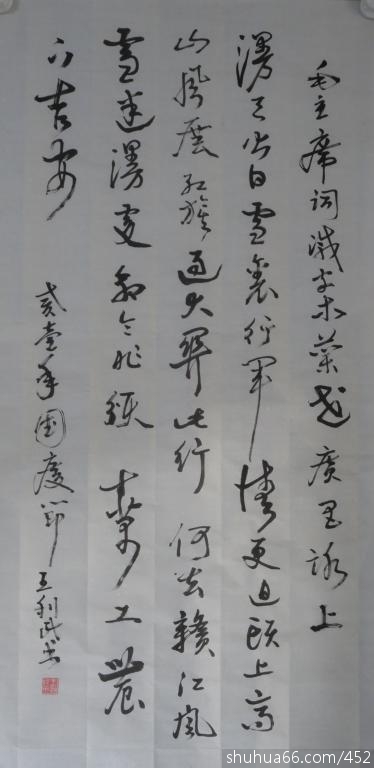 毛主席词减字木兰花广昌路上
漫天皆白雪里行军情更迫头上高
山风展红旗过大关此行何去赣江风
雪迷漫处命令昨颁十万工农
下吉安
贰壹年国庆节王利民书
shuhua66.com/452